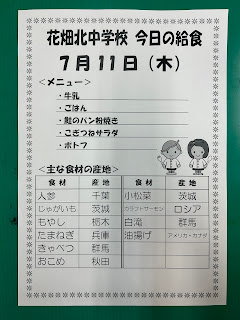 花畑北中学校 今日の給食
7月11日（木）
＜メニュー＞
・牛乳
・ごはん
・鮭のパン粉焼き
・こぎつねサラダ
・ポトフ
＜主な食材の産地＞
食材 産地 食材 産地
人参 千葉 小松菜 茨城
じゃがいも 茨城 カラフトサーモン ロシア
もやし 栃木 白滝 群馬
たまねぎ 兵庫 油揚げ アメリカ・カナダ
きゃべつ 群馬
おこめ 秋田